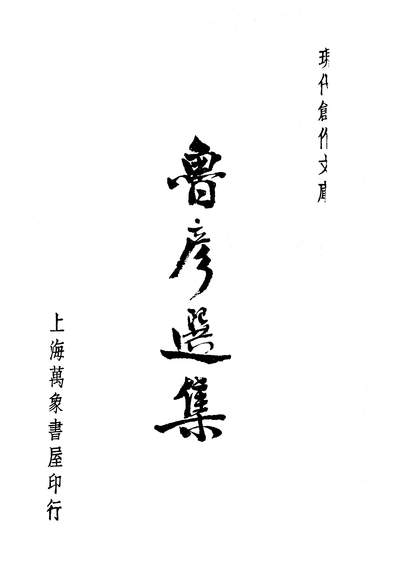 現代創作文庫
魯彥選集
上海萬象書屋印行